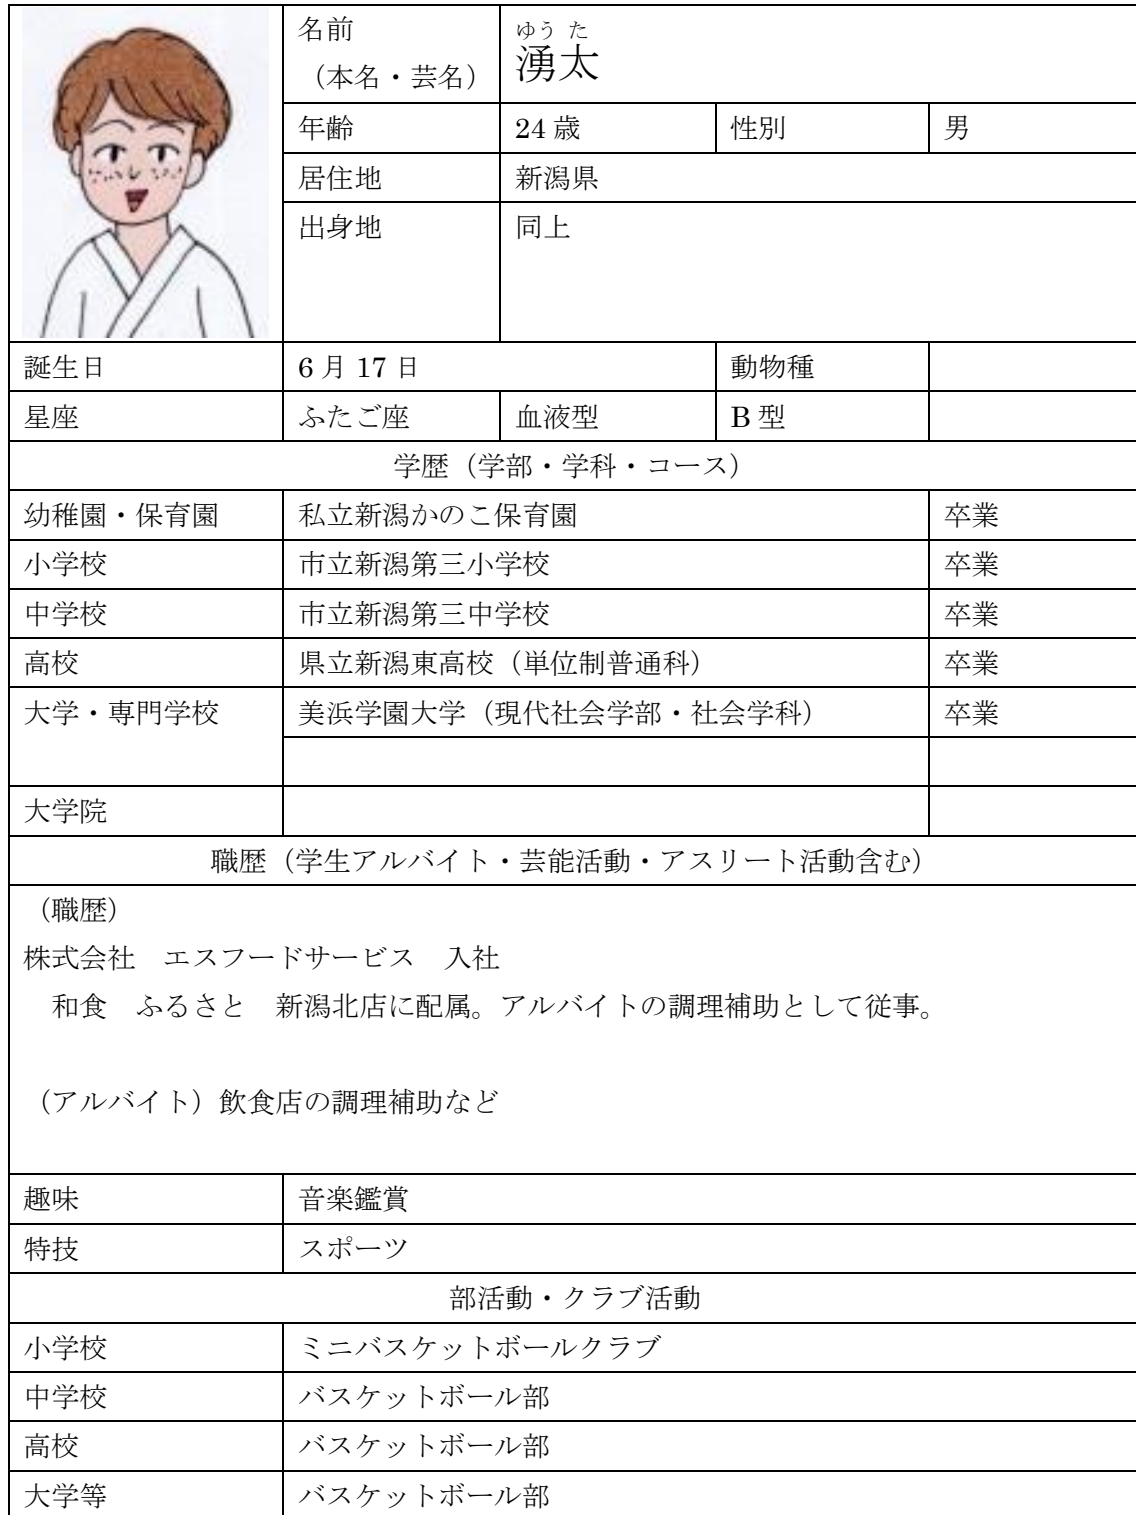 名前
（本名・芸名）
ゆう た
湧太
年齢 24 歳 性別 男
居住地 新潟県
出身地 同上
誕生日 6 月 17 日 動物種
星座 ふたご座 血液型 B 型
学歴（学部・学科・コース）
幼稚園・保育園 私立新潟かのこ保育園 卒業
小学校 市立新潟第三小学校 卒業
中学校 市立新潟第三中学校 卒業
高校 県立新潟東高校（単位制普通科） 卒業
大学・専門学校 美浜学園大学（現代社会学部・社会学科） 卒業
大学院
職歴（学生アルバイト・芸能活動・アスリート活動含む）
（職歴）
株式会社　エスフードサービス　入社
和食　ふるさと　新潟北店に配属。アルバイトの調理補助として従事。
（アルバイト）飲食店の調理補助など
趣味 音楽鑑賞
特技 スポーツ
部活動・クラブ活動
小学校 ミニバスケットボールクラブ
中学校 バスケットボール部
高校 バスケットボール部
大学等 バスケットボール部